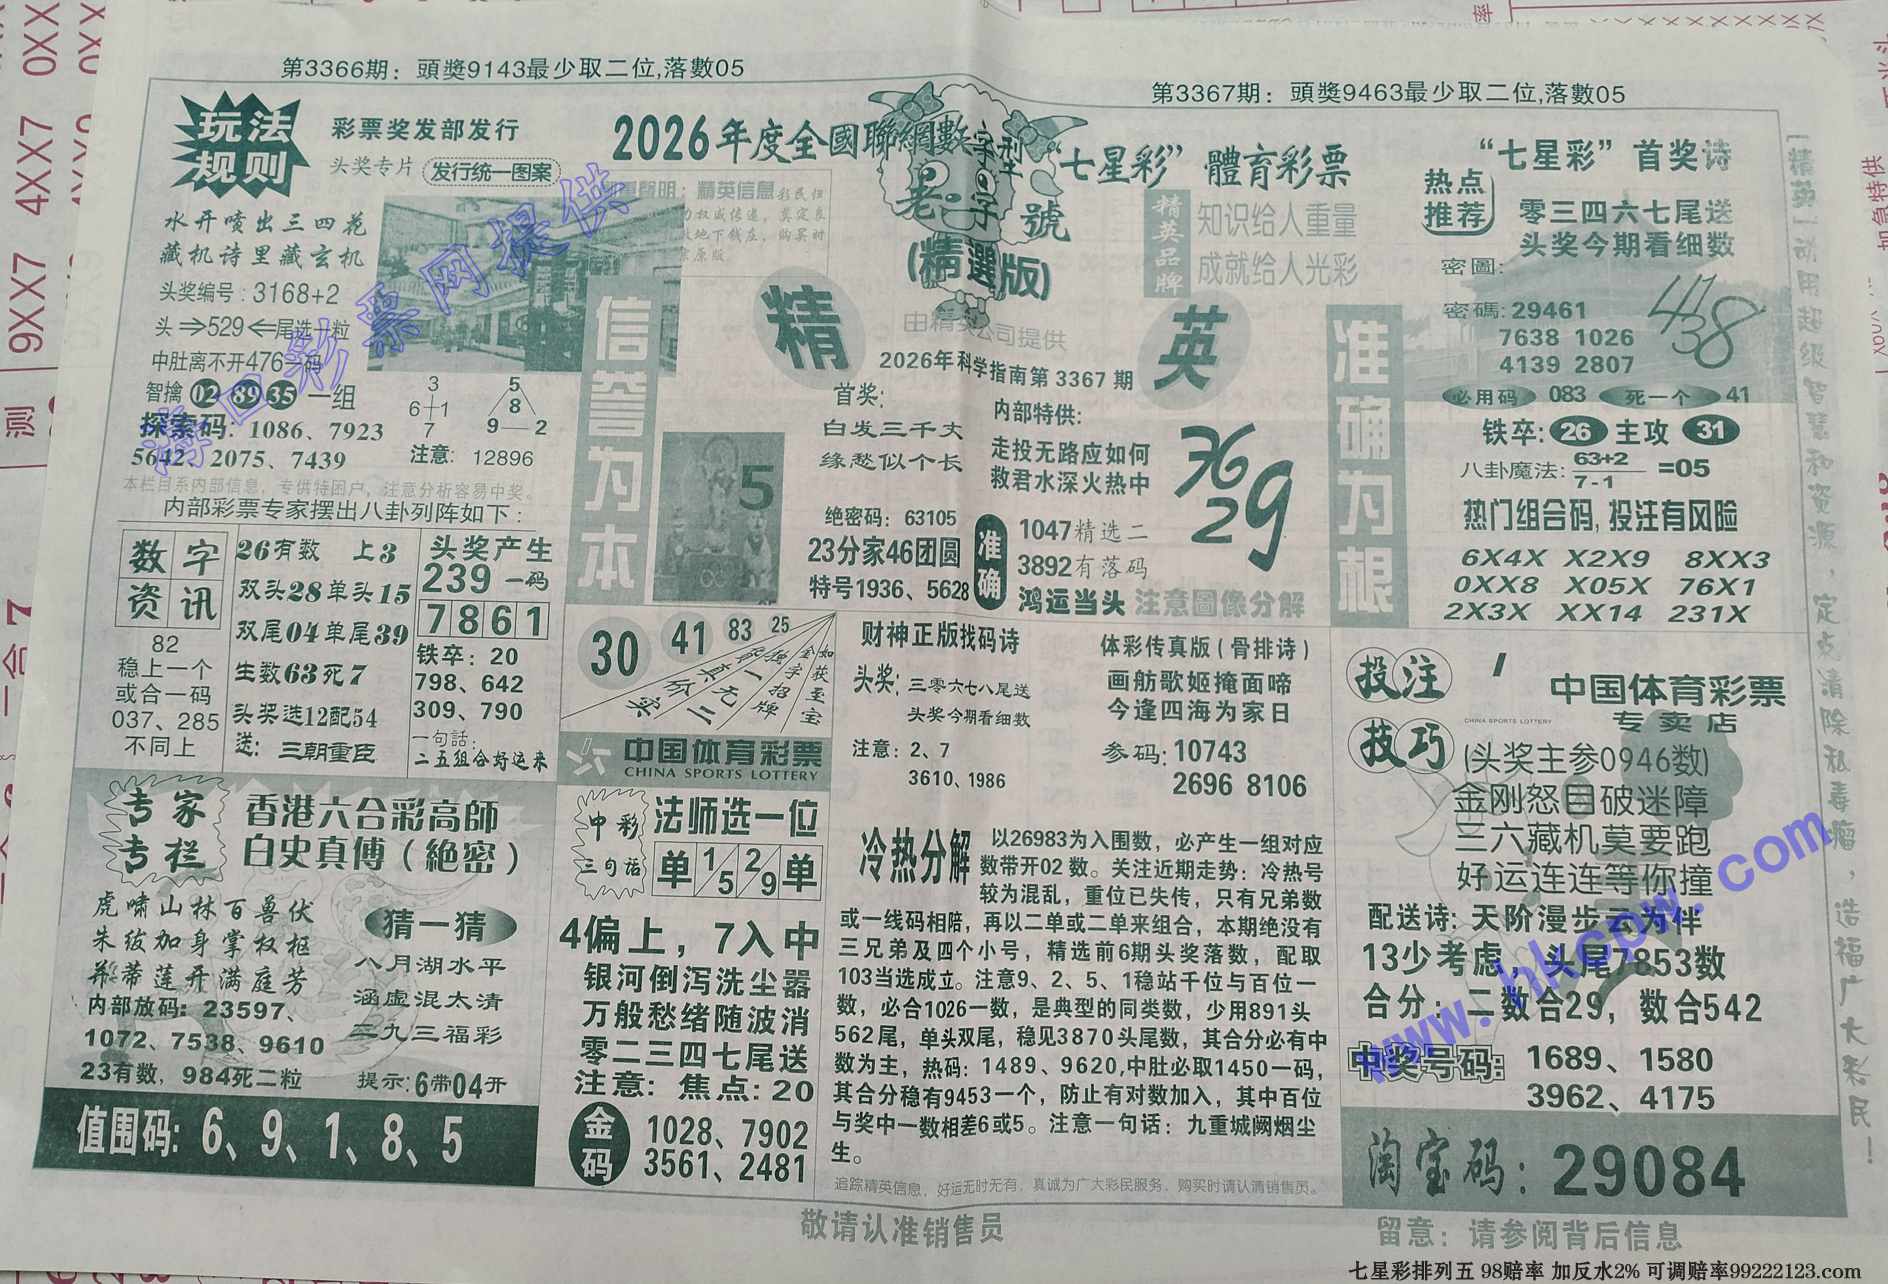 第3366期：頭獎9143最少取二位,落數05
第3367期：頭獎9463最少取二位,落數05
玩法
规则
彩票奖发部发行
头奖专片 发行统一图案
水开喷出三四花
藏机诗里藏玄机
头奖编号：3168+2
头⇒529⇐尾选一粒
中肚离不开476一码
智擒 02 89 35 一组
探索码：1086、7923
5642、2075、7439
3
6 1
7
5
8
9 2
注意：12896
本栏目系内部信息，专供特困户，注意分析容易中奖。
内部彩票专家摆出八卦列阵如下：
2026年度全國聯網數字型“七星彩”體育彩票
老 字 號
(精選版)
由精英公司提供
精英品牌
知识给人重量
成就给人光彩
精 英
2026年科学指南第3367期
信誉为本
准确为根
首奖:
白发三千丈
缘愁似个长
内部特供:
走投无路应如何
救君水深火热中
5
绝密码：63105
23分家46团圆
特号1936、5628
准确
1047精选二
3892有落码
鸿运当头 注意圖像分解
“七星彩”首奖诗
热点
推荐
零三四六七尾送
头奖今期看细数
密圖:
密碼:29461
7638 1026
4139 2807
必用码 083 死一个 41
铁卒: 26 主攻 31
八卦魔法: 63+2
7-1 =05
热门组合码,投注有风险
6X4X X2X9 8XX3
0XX8 X05X 76X1
2X3X XX14 231X
数字
资讯
82
稳上一个
或合一码
037、285
不同上
26有数 上3
双头28单头15
双尾04单尾39
生数63死7
头奖选12配54
送：三朝重臣
头奖产生
239一码
7861
铁卒：20
798、642
309、790
一句話：
二五组合好运来
30 41 83 25
中国体育彩票
CHINA SPORTS LOTTERY
财神正版找码诗
头奖: 三零六七八尾送
头奖今期看细数
注意：2、7
3610、1986
体彩传真版(骨排诗)
画舫歌姬掩面啼
今逢四海为家日
参码:10743
2696 8106
投注
技巧
中国体育彩票
CHINA SPORTS LOTTERY
专卖店
(头奖主参0946数)
金刚怒目破迷障
三六藏机莫要跑
好运连连等你撞
配送诗: 天阶漫步云为伴
13少考虑，头尾7853数
合分：二数合29，数合542
中奖号码: 1689、1580
3962、4175
专家
专栏
香港六合彩高師
白史真傅(絶密)
虎啸山林百兽伏
朱绂加身掌权枢
并蒂莲开满庭芳
内部放码：23597、
1072、7538、9610
23有数，984死二粒
猜一猜
八月湖水平
涵虚混太清
二九三福彩
提示:6带04开
值围码: 6、9、1、8、5
中彩
三句话
法师选一位
单 1/5 2/9 单
4偏上，7入中
银河倒泻洗尘器
万般愁绪随波消
零二三四七尾送
注意：焦点：20
金码
1028、7902
3561、2481
冷热分解
以26983为入围数，必产生一组对应
数带开02数。关注近期走势：冷热号
较为混乱，重位已失传，只有兄弟数
或一线码相陪，再以二单或二单来组合，本期绝没有
三兄弟及四个小号，精选前6期头奖落数，配取
103当选成立。注意9、2、5、1稳站千位与百位一
数，必合1026一数，是典型的同类数，少用891头
562尾，单头双尾，稳见3870头尾数，其合分必有中
数为主，热码：1489、9620,中肚必取1450一码，
其合分稳有9453一个，防止有对数加入，其中百位
与奖中一数相差6或5。注意一句话：九重城阙烟尘
生。
追踪精英信息，好运无时无有，真诚为广大彩民服务，购买时请认清销售员。
淘宝码：29084
敬请认准销售员
留意：请参阅背后信息
www.hkcpw.com
七星彩排列五 98赔率 加反水2% 可调赔率99222123.com